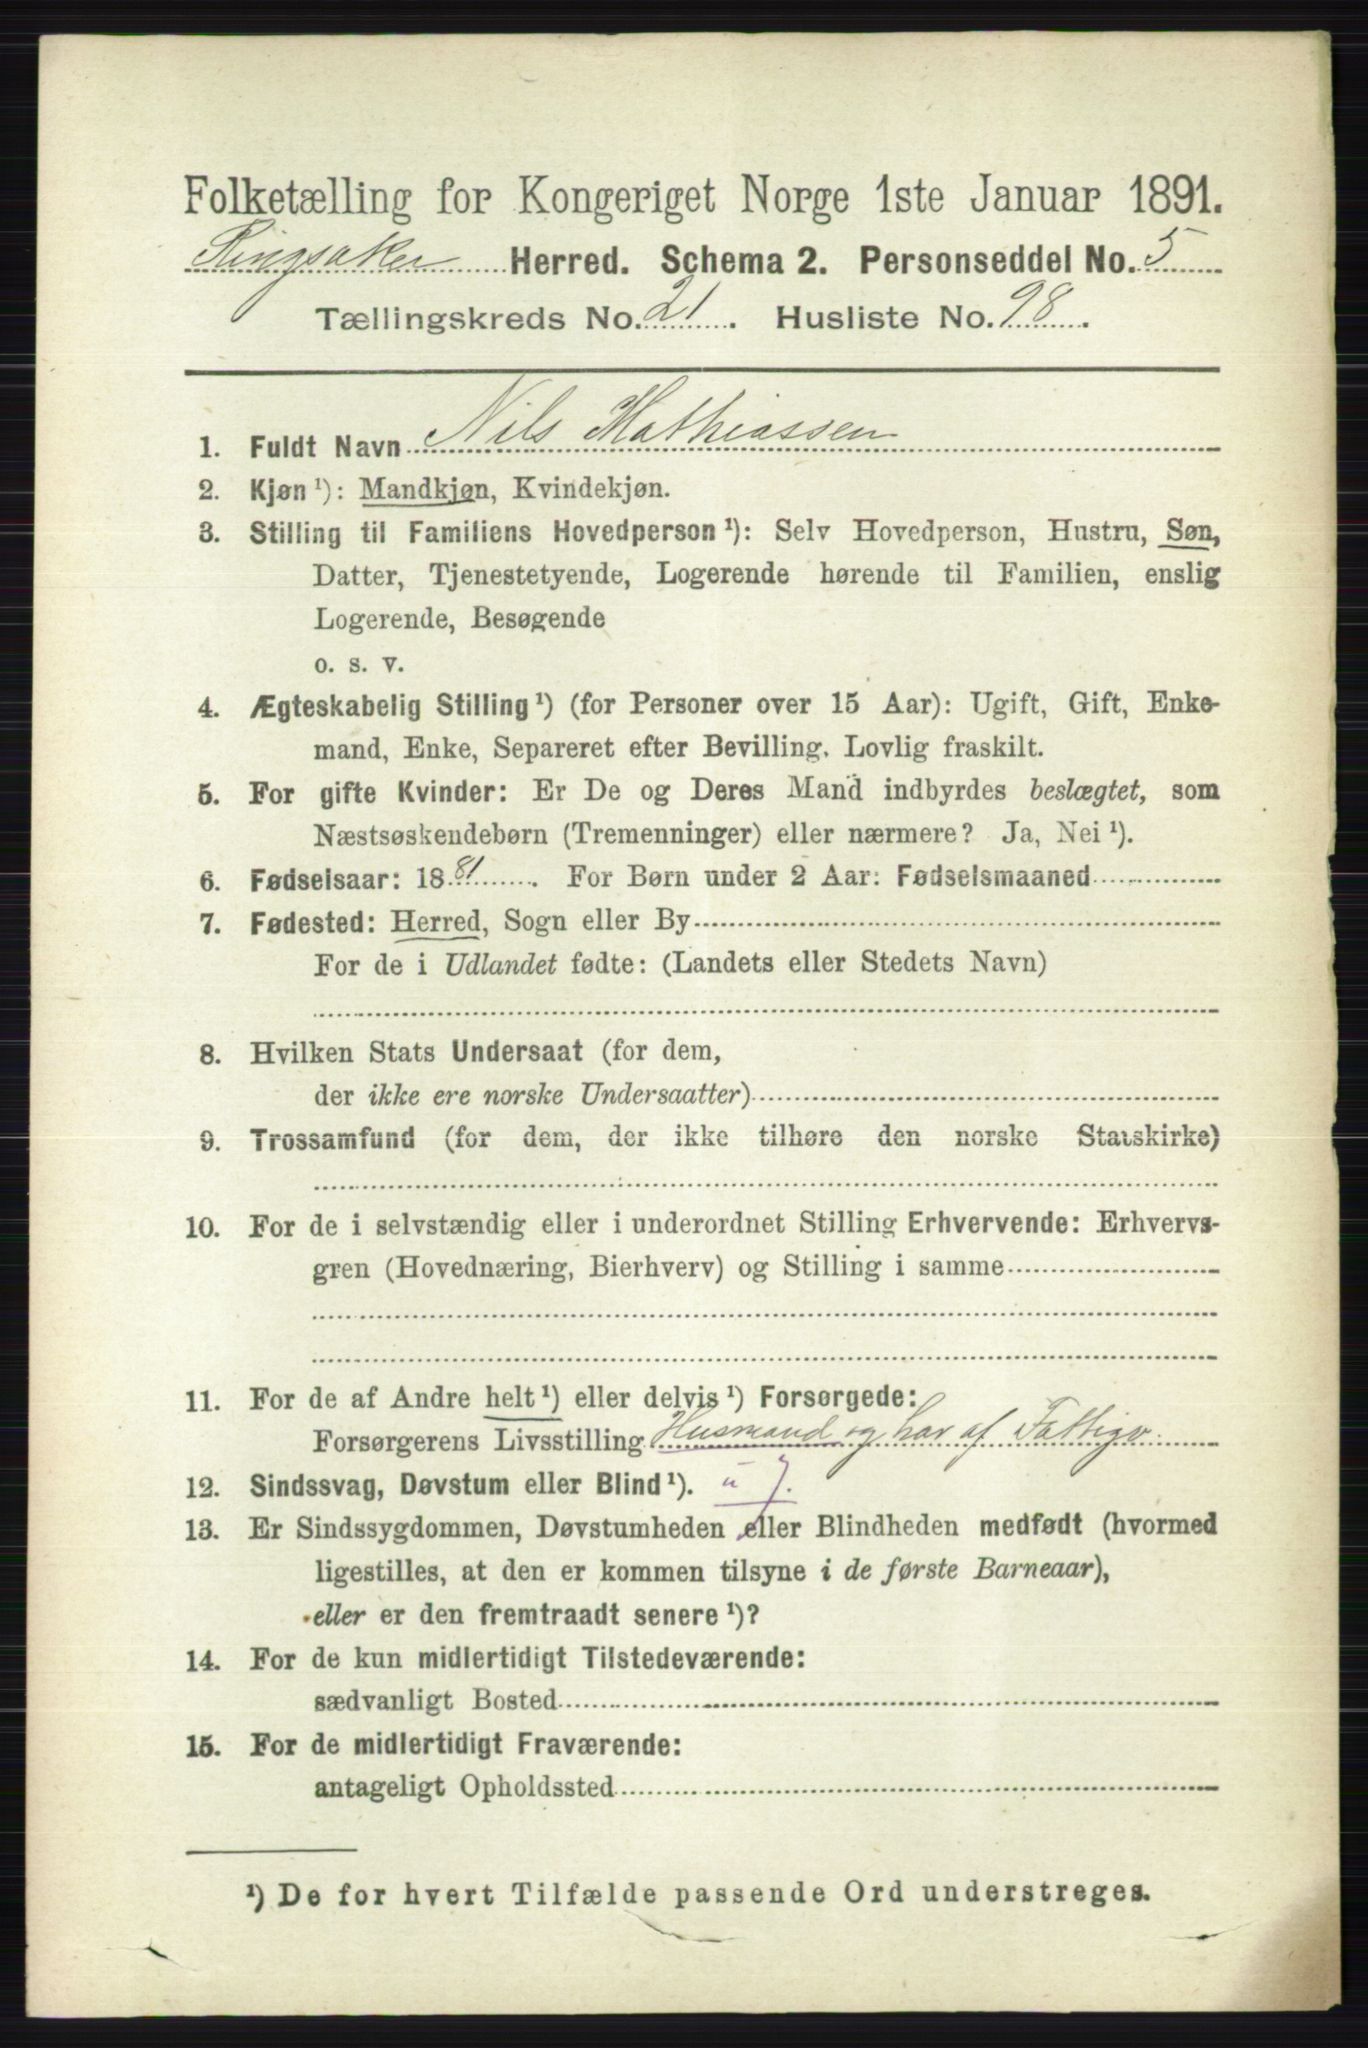 Folketælling for Kongeriget Norge 1ste Januar 1891.
Ringsaker Herred. Schema 2. Personseddel No. 5
Tællingskreds No. 21. Husliste No. 98.
1. Fuldt Navn Nils Mathiassen
2. Kjøn ¹): Mandkjøn, Kvindekjøn.
3. Stilling til Familiens Hovedperson ¹): Selv Hovedperson, Hustru, Søn,
Datter, Tjenestetyende, Logerende hørende til Familien, enslig
Logerende, Besøgende
o. s. v.
4. Ægteskabelig Stilling ¹) (for Personer over 15 Aar): Ugift, Gift, Enke-
mand, Enke, Separeret efter Bevilling. Lovlig fraskilt.
5. For gifte Kvinder: Er De og Deres Mand indbyrdes beslægtet, som
Næstsøskendebørn (Tremenninger) eller nærmere? Ja, Nei ¹).
6. Fødselsaar: 1881. For Børn under 2 Aar: Fødselsmaaned
7. Fødested: Herred, Sogn eller By
For de i Udlandet fødte: (Landets eller Stedets Navn)
8. Hvilken Stats Undersaat (for dem,
der ikke ere norske Undersaatter)
9. Trossamfund (for dem, der ikke tilhøre den norske Statskirke)
10. For de i selvstændig eller i underordnet Stilling Erhvervende: Erhvervs-
gren (Hovednæring, Bierhverv) og Stilling i samme
11. For de af Andre helt ¹) eller delvis ¹) Forsørgede:
Forsørgerens Livsstilling Husmand og har af Fattigv.
12. Sindssvag, Døvstum eller Blind ¹).
13. Er Sindssygdommen, Døvstumheden eller Blindheden medfødt (hvormed
ligestilles, at den er kommen tilsyne i de første Barneaar),
eller er den fremtraadt senere ¹)?
14. For de kun midlertidigt Tilstedeværende:
sædvanligt Bosted
15. For de midlertidigt Fraværende:
antageligt Opholdssted
¹) De for hvert Tilfælde passende Ord understreges.